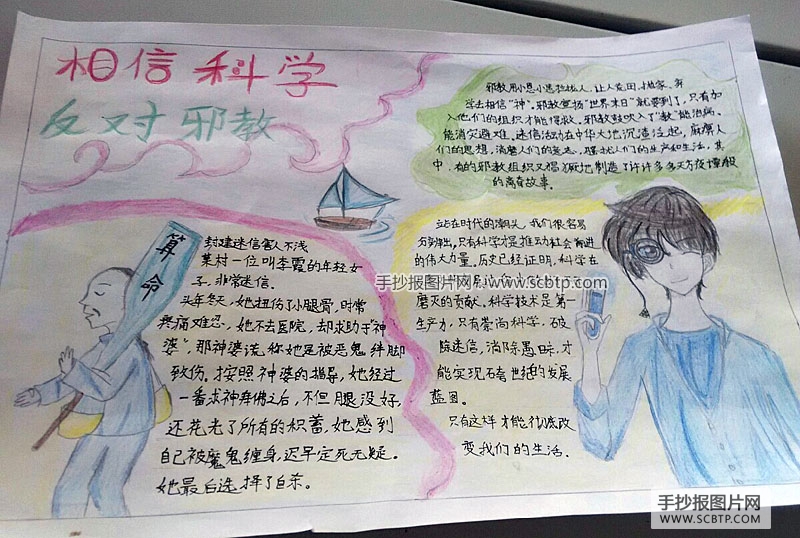 相信科学
反对邪教
邪教用小恩小惠拉拢人,让人
学去相信“神”。邪教宣扬“世界末日”就要到了,只有加
入他们的组织才能得救。邪教鼓吹入了“教”能治病、
能消灾避难。迷信活动在中华大地沉渣泛起,麻痹人
们的思想,消磨人们的意志,骚扰人们的生产和生活,其
中,有的邪教组织又猖獗地制造了许许多多天方夜谭般
的离奇故事。
算命
封建迷信害人不浅
某村一位叫李霞的年轻女
子,非常迷信。
头年冬天,她扭伤了小腿骨,时常
疼痛难忍,她不去医院,却求助于神
婆”,那神婆谎称她是被恶鬼绊脚
致伤。按照神婆的指导,她经过
一番求神拜佛之后,不但腿没好,
还花光了所有的积蓄,她感到
自己被魔鬼缠身,迟早定死无疑。
她最后选择了自杀。
站在时代的潮头,我们很容易
只有科学才是推动社会前进
的伟大力量。历史已经证明,科学在
磨灭的贡献。科学技术是第一
生产力,只有崇尚科学,破
除迷信,消除愚昧,才
能实现 世纪的发展
蓝图。
只有这样才能彻底改
变我们的生活.
手抄报图片网-www.scbtp.com
手抄报图片网
WWW.SCBTP.COM